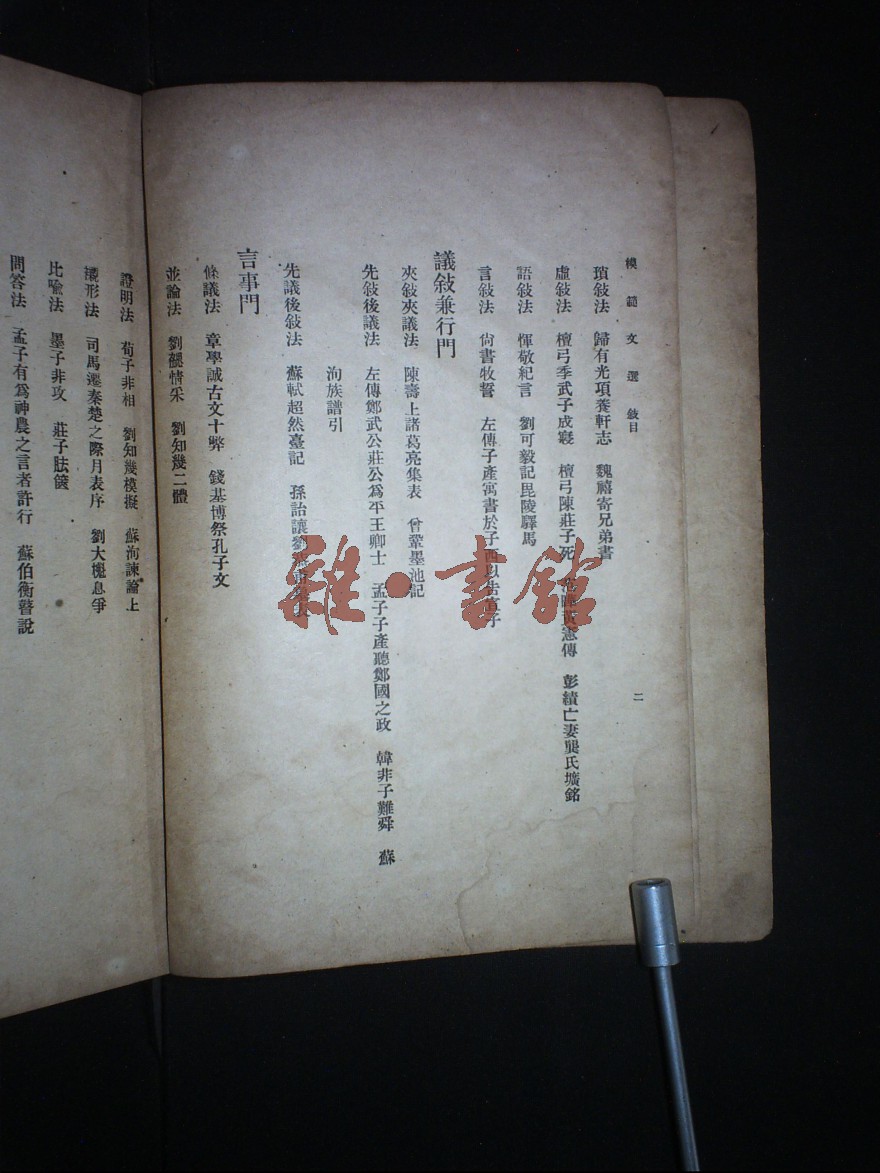 模範文選 敍目
二
瑣敍法 歸有光項脊軒志 魏禧寄兄弟書
虛敍法 檀弓季武子成寢 檀弓陳莊子死 憲傳 彭績亡妻龔氏壙銘
語敍法 惲敬紀言 劉可毅記毘陵驛馬
言敍法 尙書牧誓 左傳子產寓書於子西以告宣子
議敍兼行門
夾敍夾議法 陳壽上諸葛亮集表 曾鞏墨池記
先敍後議法 左傳鄭武公莊公爲平王卿士 孟子子產聽鄭國之政 韓非子難舜 蘇
洵族譜引
先議後敍法 蘇軾超然臺記 孫詒讓劉
言事門
條議法 章學誠古文十弊 錢基博祭孔子文
並論法 劉勰情采 劉知幾二體
證明法 荀子非相 劉知幾模擬 蘇洵諫論上
襯形法 司馬遷秦楚之際月表序 劉大櫆息爭
比喩法 墨子非攻 莊子胠篋
問答法 孟子有爲神農之言者許行 蘇伯衡瞽說
雜·書館